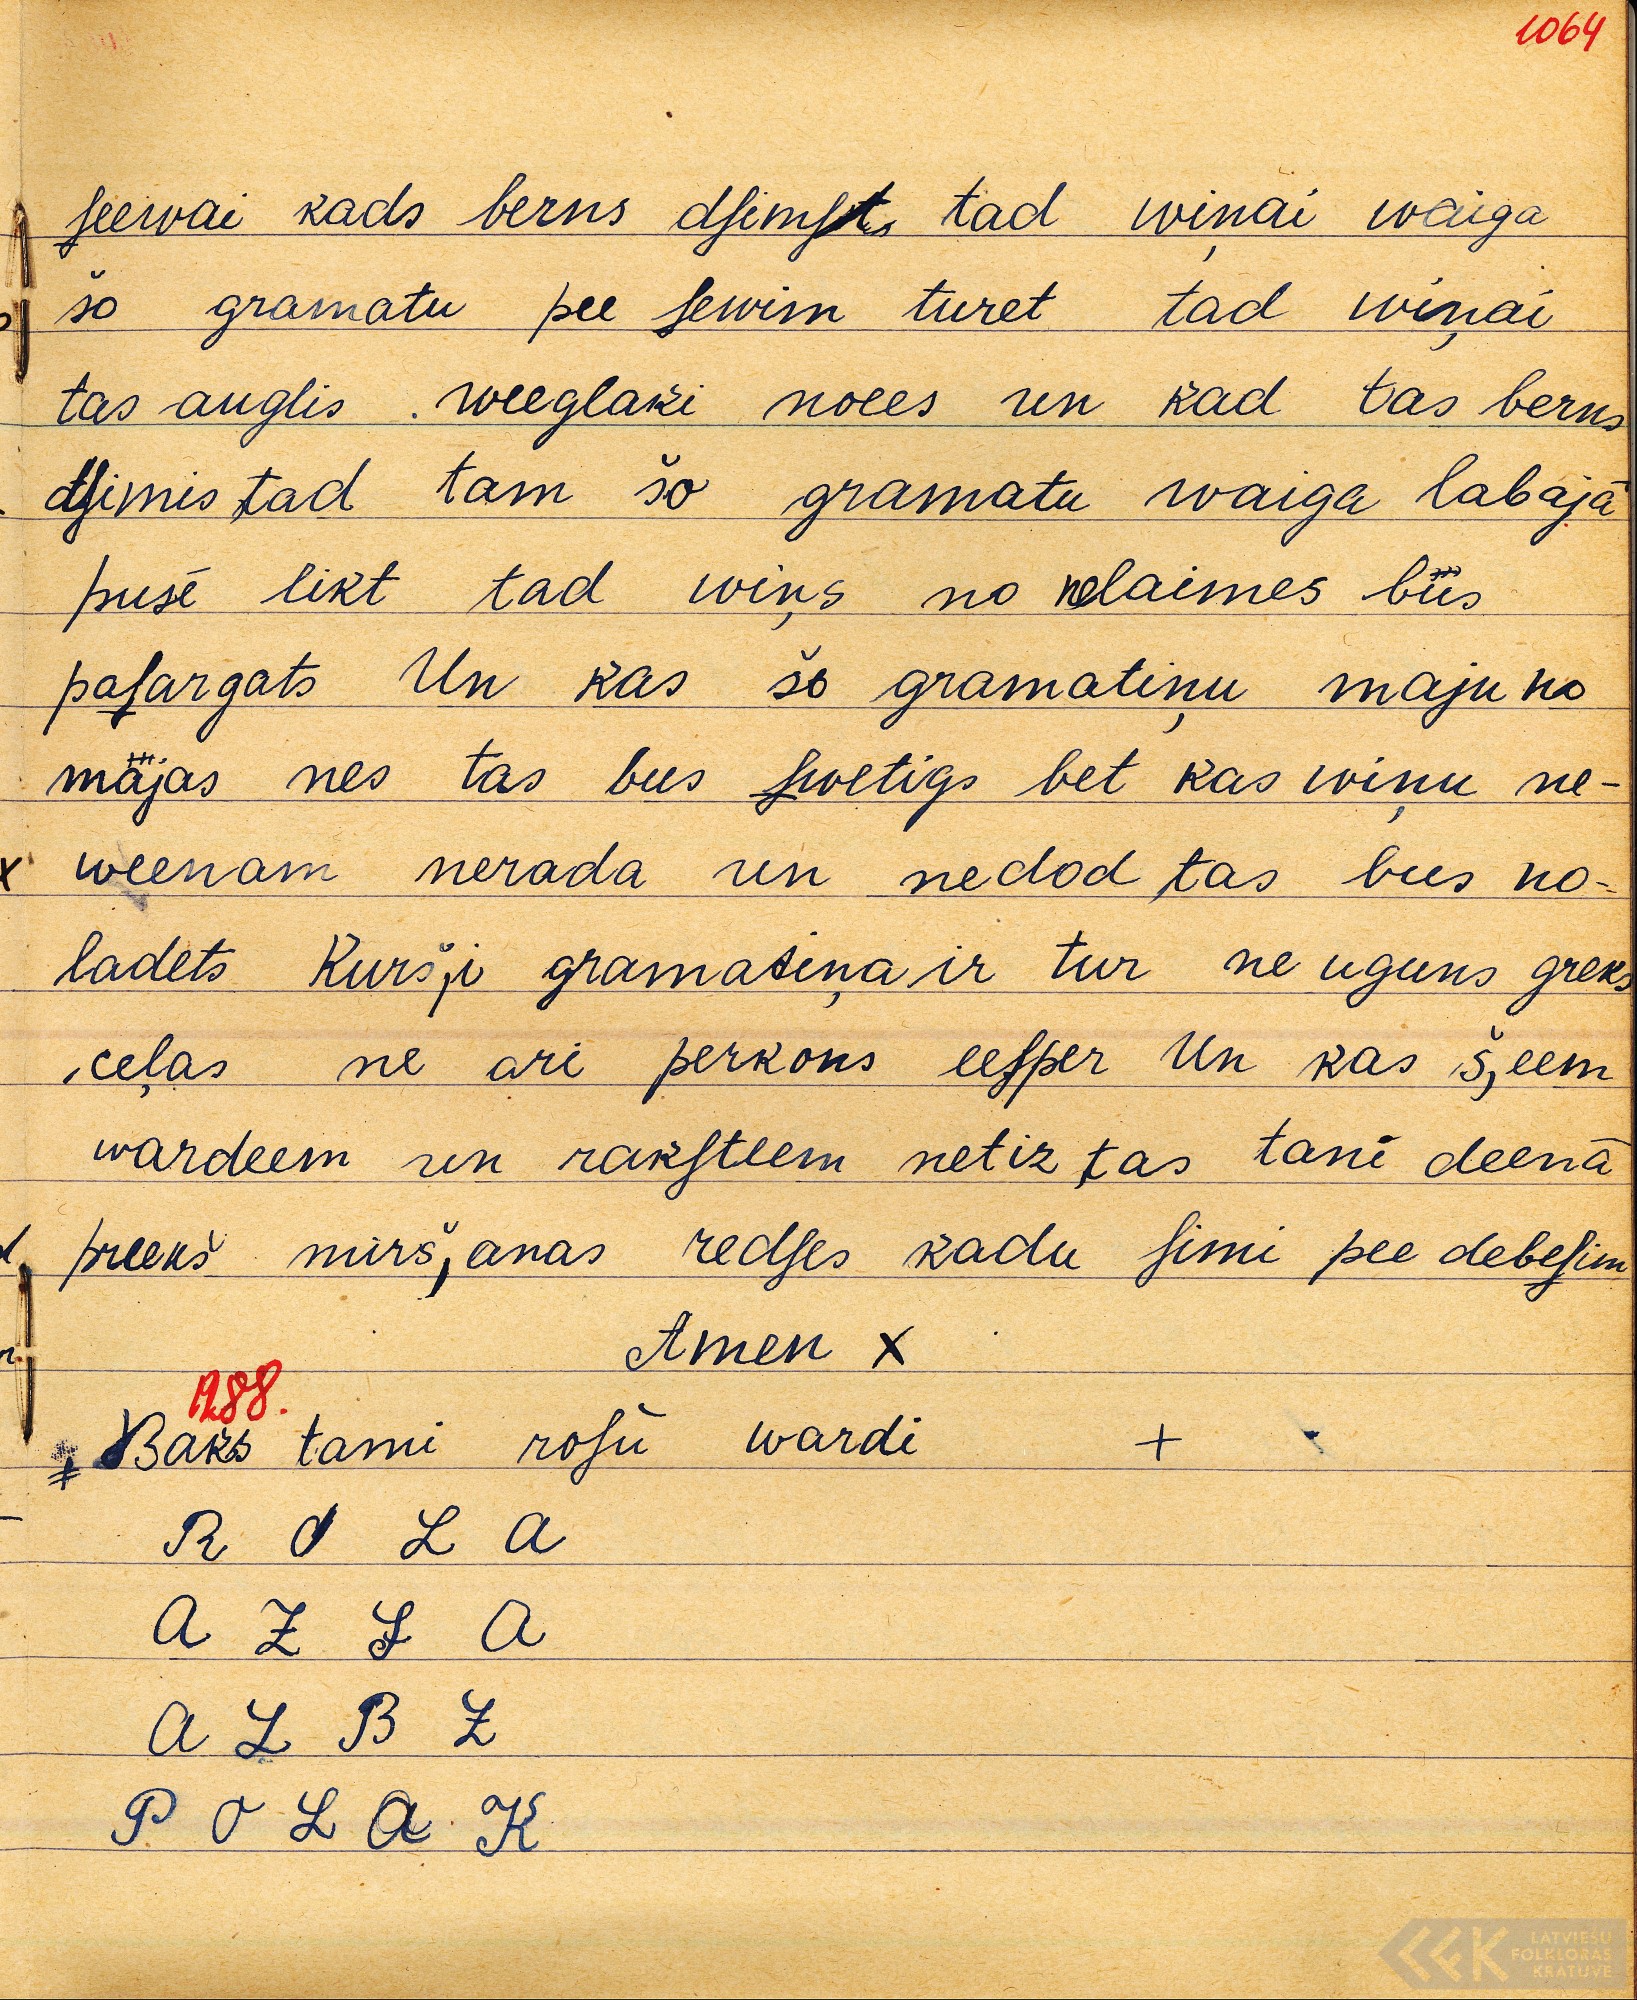 1064
ſeewai kads berns dſimſts tad wiņai waiga
šo gramatu pee ſewim turet tad wiņai
tas auglis weeglaki noees un kad tas berns
dſimis tad tam šo gramatu waiga labajā
pusē likt tad wiņs no nelaimes būs
paſargats Un kas šo gramatiņu maju no
mājas nes tas bus ſwetigs bet kas wiņu ne-
weenam nerada un nedod tas bus no-
ladets Kurš,i gramatiņa ir tur ne uguns greks
ceļas ne ari perkons eeſper Un kas š,eem
wardeem un rakſteem netiz tas tani deenā
preekš mirš,anas redſes kadu ſimi pee debeſim
Amen x
1288.
Baks tami roſū wardi +
R O L A
A Z S A
A Z B Z
P O L A K
LATVIEŠU
FOLKLORAS
KRĀTUVE